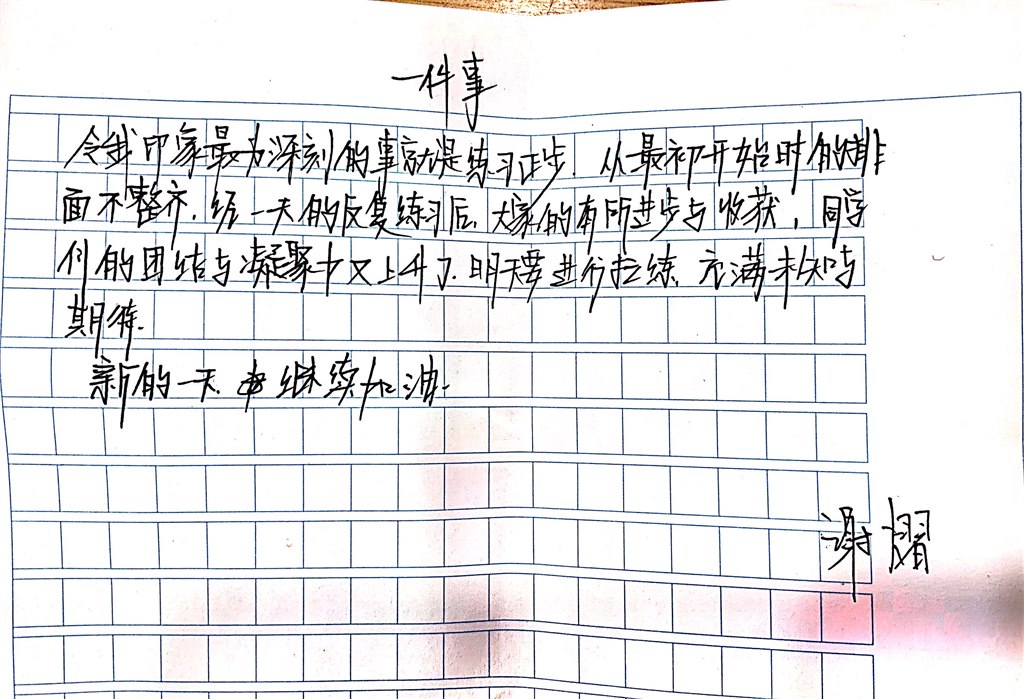 一件事
令我印象最为深刻的事就是练习正步.从最初开始时的排
面不整齐.经一天的反复练习后.大家的有所进步与收获,同学
们的团结与凝聚力又上升了.明天要进行拉练.充满未知与
期待.
新的一天 继续加油.
谢熠